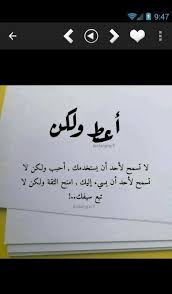 9:47
أعط ولكن
لا تسمح لأحد أن يستخدمك , أحبب ولكن لا
تسمح لأحد أن يسيء إليك , امنح الثقة ولكن لا
تبع سيفك..!